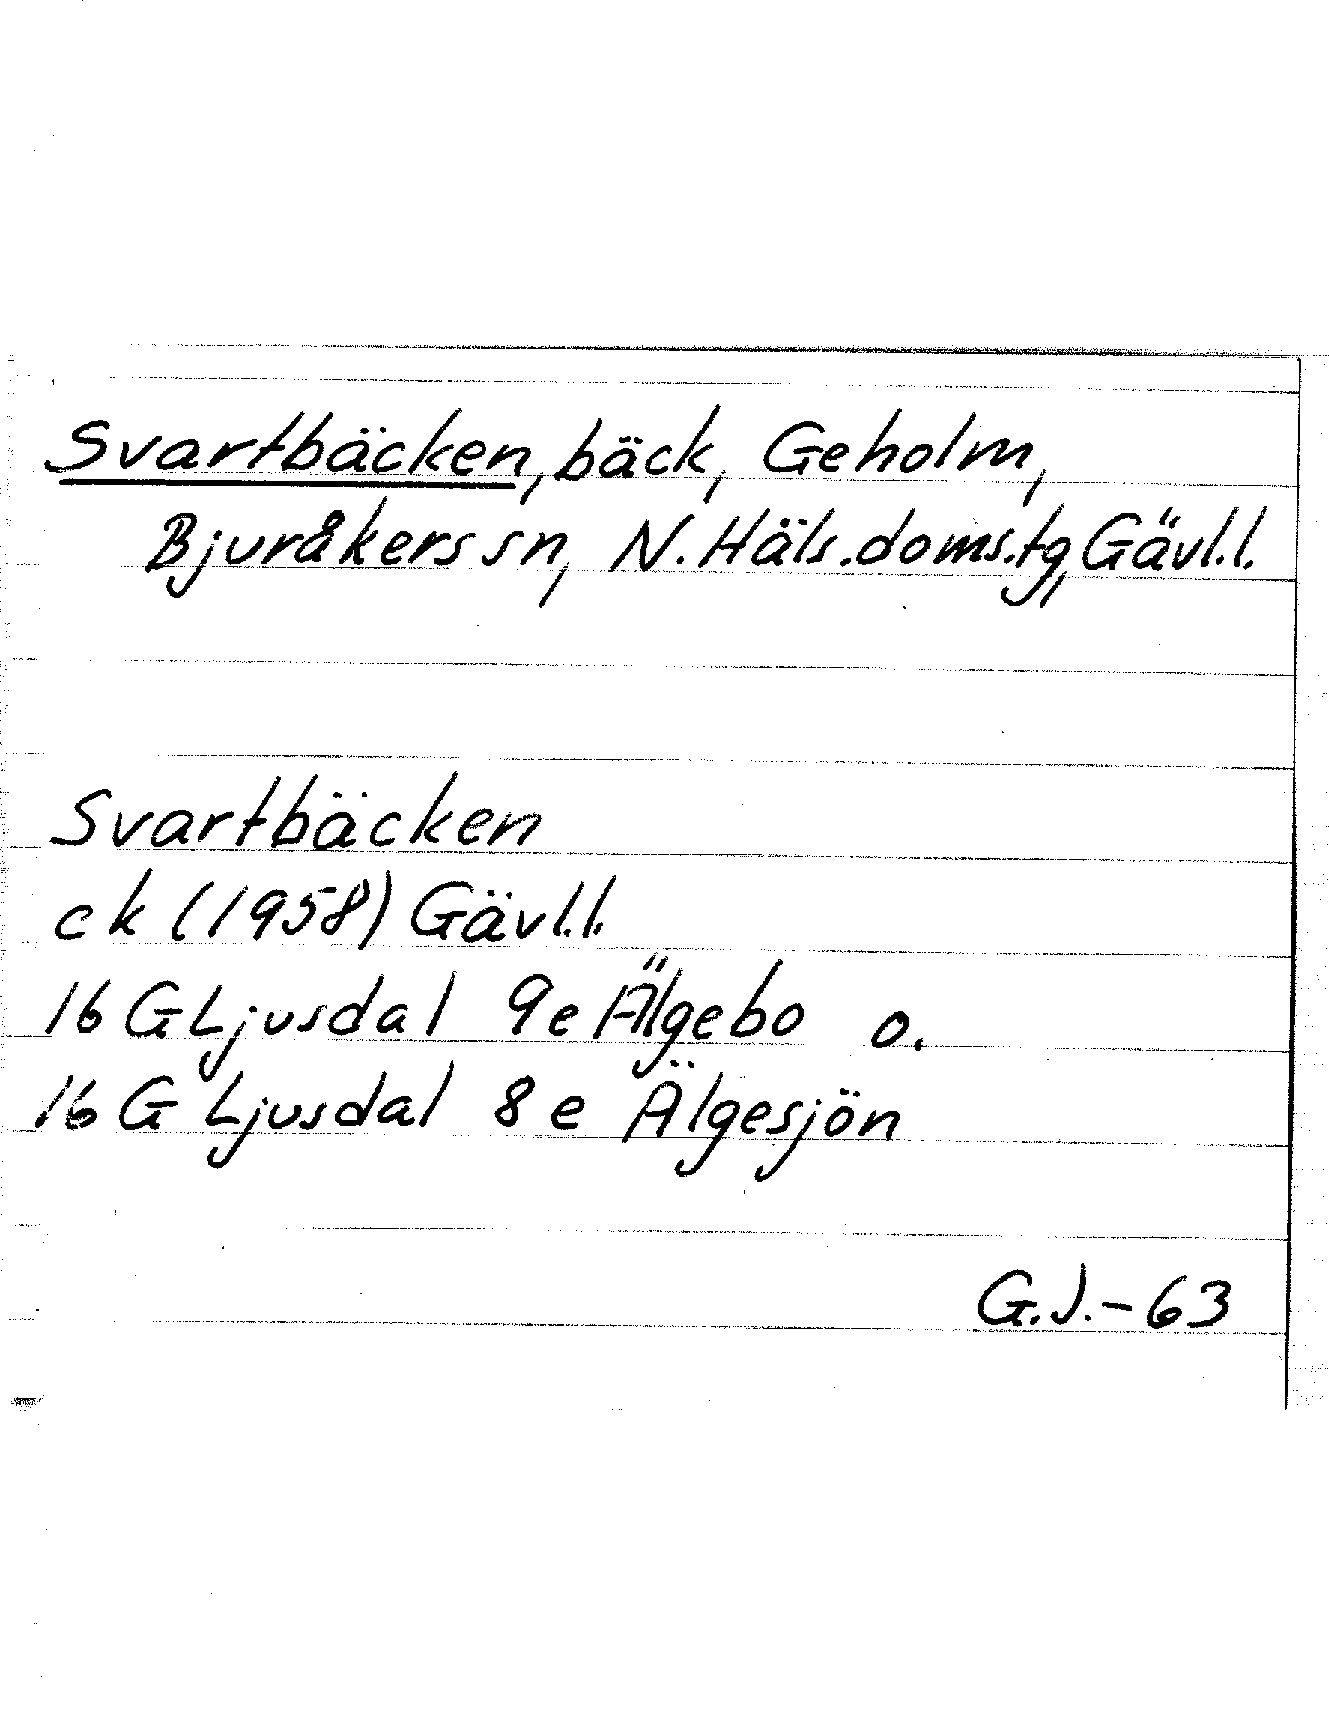 Svartbäcken, bäck, Geholm,
Bjuråkers sn, N. Häls. doms. tg, Gävl. l.
Svartbäcken
ek (1958) Gävl. l.
16 G Ljusdal 9e Älgebo o.
16 G Ljusdal 8e Älgesjön
G.J. - 63